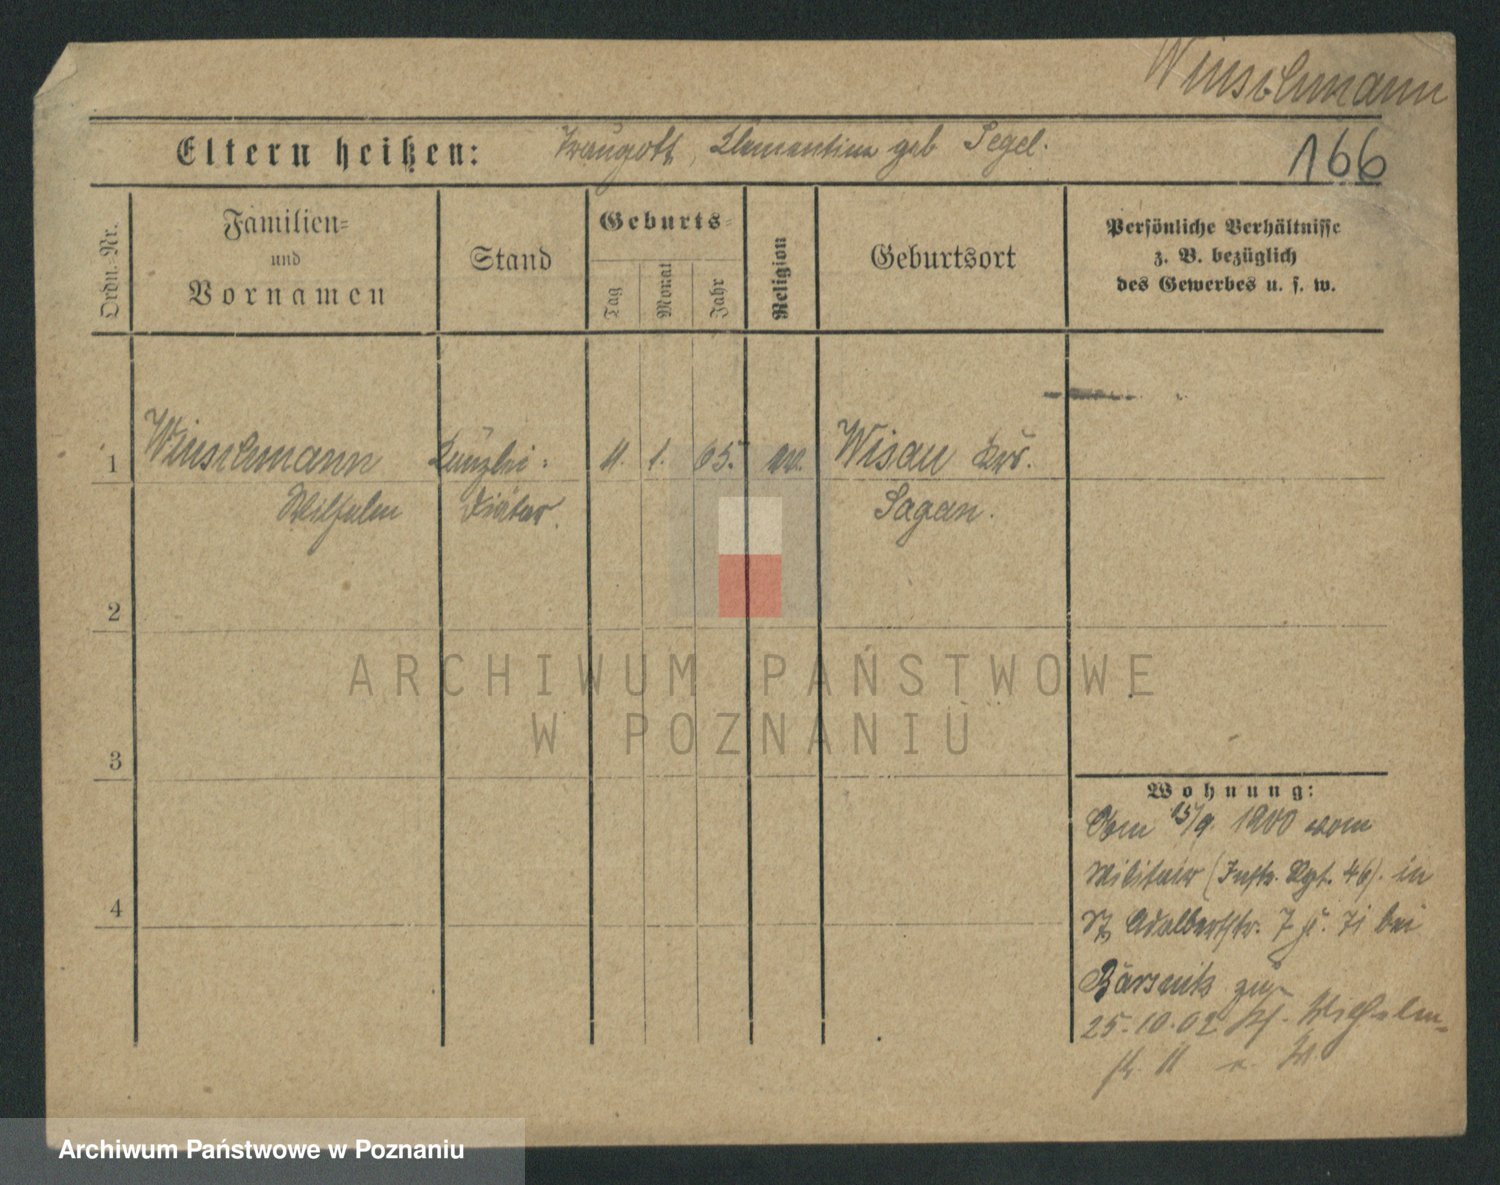 Winschmann
Eltern heißen: Traugott, Klementine geb Segel.
166
Ordn.-Nr.
Familien-
und
Vornamen
Stand
Geburts-
Tag
Monat
Jahr
Religion
Geburtsort
Persönliche Verhältnisse
z. B. bezüglich
des Gewerbes u. s. w.
1 Winschmann Kanzlei- 11. 1. 65. ev. Wisau Krs.
Wilhelm Diätar. Sagan.
2
ARCHIWUM PAŃSTWOWE
W POZNANIU
3
Wohnung:
Am 15/9. 1900 vom
Militair (Inftr. Rgt. 46). in
Adalbertstr. 7 bei
zu-
25.10.02 Wilhelm-
str. 11
4
Archiwum Państwowe w Poznaniu